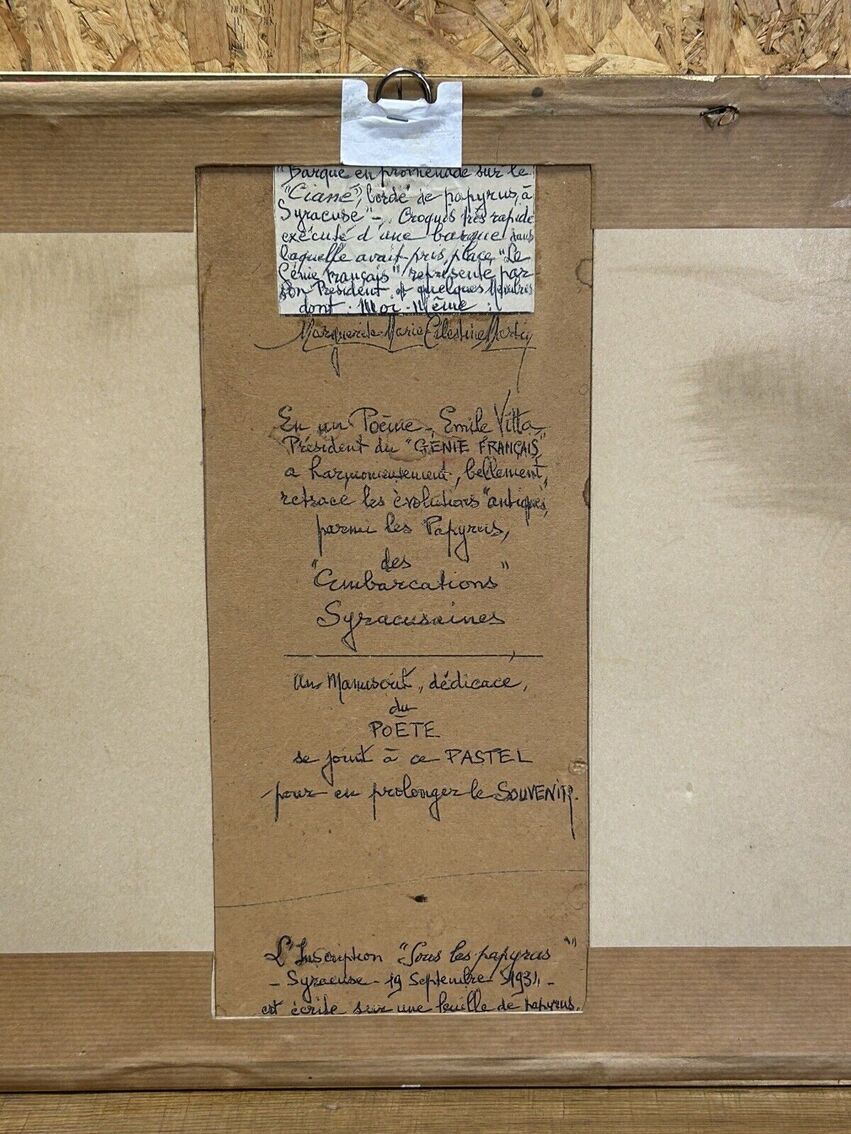 "Barque en promenade sur le
"Ciane", bordé de papyrus, à
Syracuse" -. Croquis très rapide
exécuté d'une barque dans
laquelle avait pris place "Le
Génie Français" représenté par
Son Président et quelques Membres
dont Moi-Même :
Marguerite-Marie Célestine Martin
En un Poème -, Emile Vitta,
Président du "GÉNIE FRANÇAIS",
a harmonieusement, bellement,
retracé les évolutions "antiques",
parmi les Papyrus,
des
"Embarcations"
Syracusaines
Un Manuscrit, dédicace,
du
POÈTE
se joint à ce PASTEL
pour en prolonger le SOUVENIR.
L'Inscription "Sous les papyrus"
- Syracuse - 19 Septembre 1931, -
est écrite sur une feuille de papyrus.